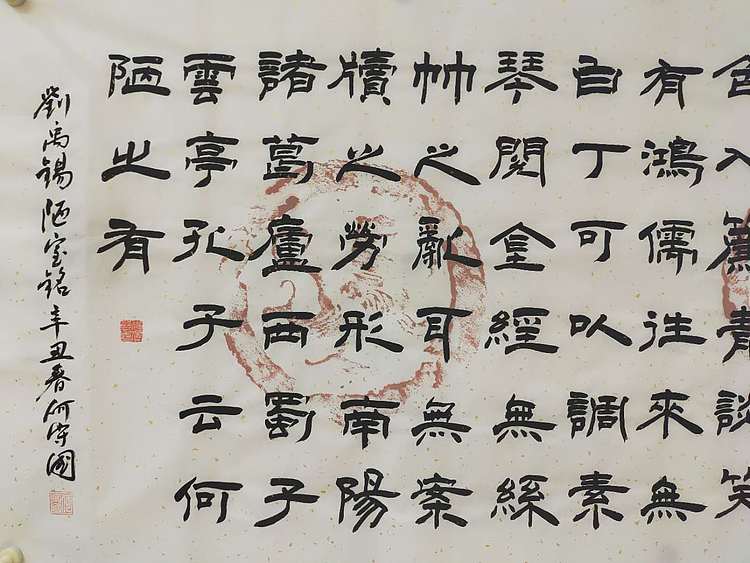 色入簾青談笑
有鴻儒往來無
白丁可以調素
琴閱金經無絲
竹之亂耳無案
牘之勞形南陽
諸葛廬西蜀子
雲亭孔子云何
陋之有
劉禹錫陋室銘辛丑春何守國